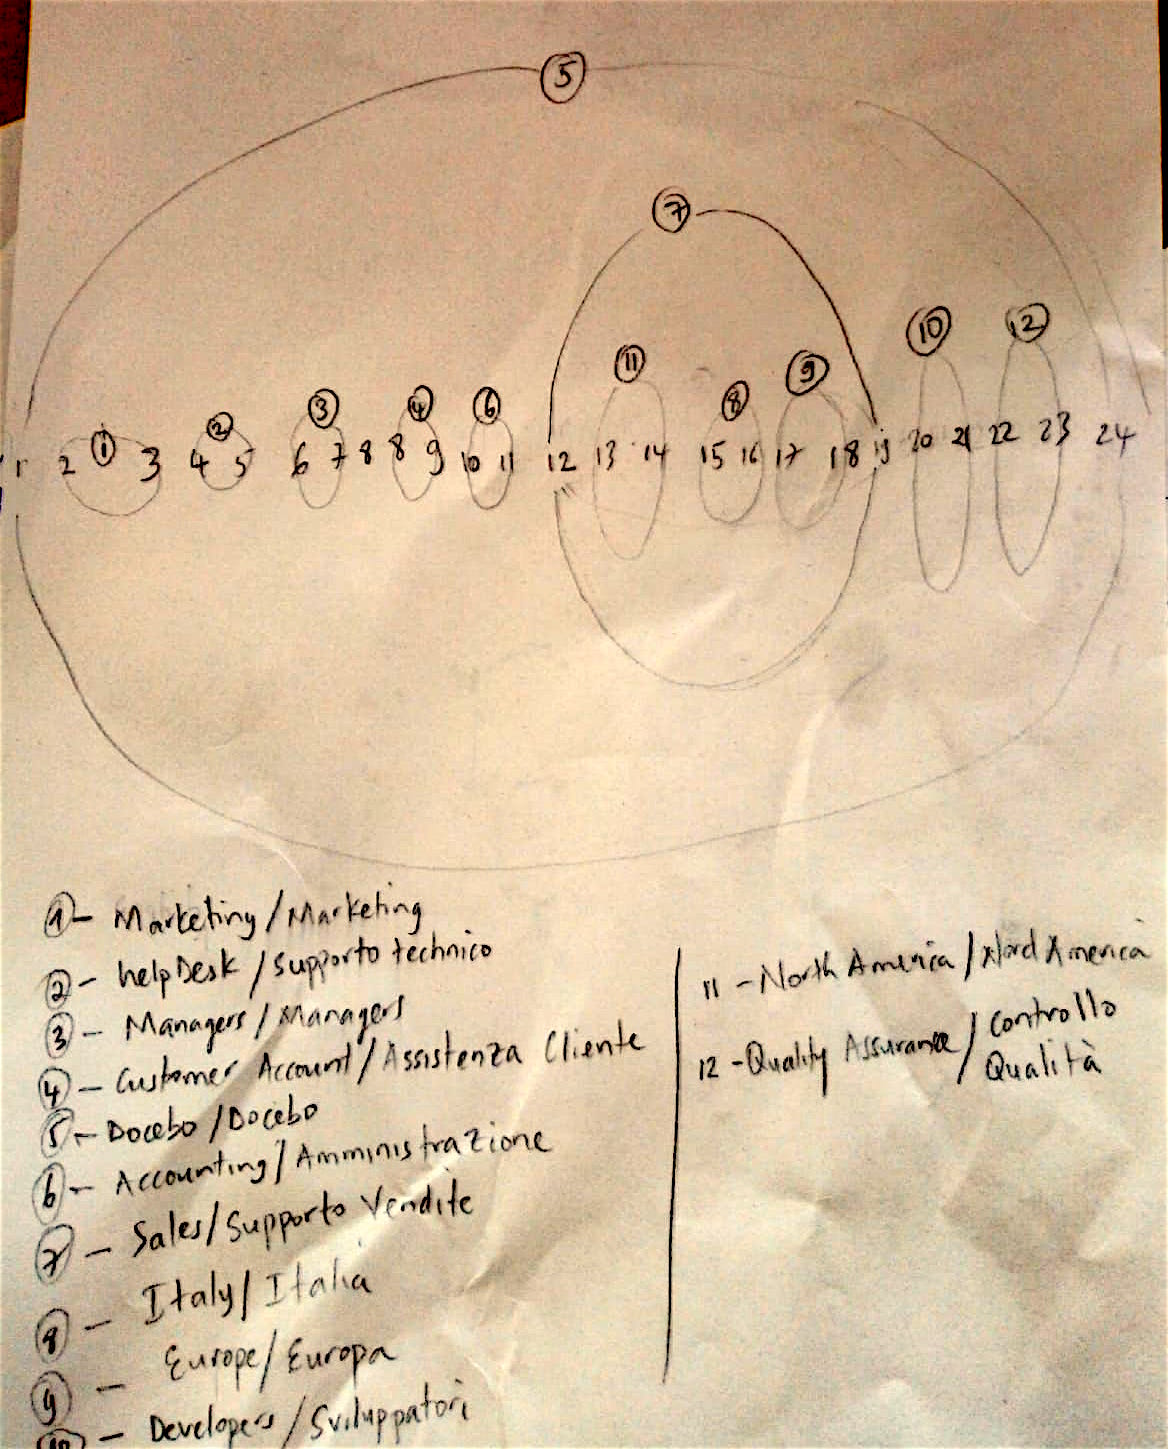 5
7
10
12
11
9
8
3
4
6
2
1
1 2 3 4 5 6 7 8 8 9 10 11 12 13 14 15 16 17 18 19 20 21 22 23 24
1 - Marketing / Marketing
2 - helpDesk / Supporto technico
3 - Managers / Managers
4 - Customer Account / Assistenza Cliente
5 - Docebo / Docebo
6 - Accounting / Amministrazione
7 - Sales / Supporto Vendite
8 - Italy / Italia
9 - Europe / Europa
10 - Developers / Sviluppatori
11 - North America / Nord America
12 - Quality Assurance / Controllo
Qualità